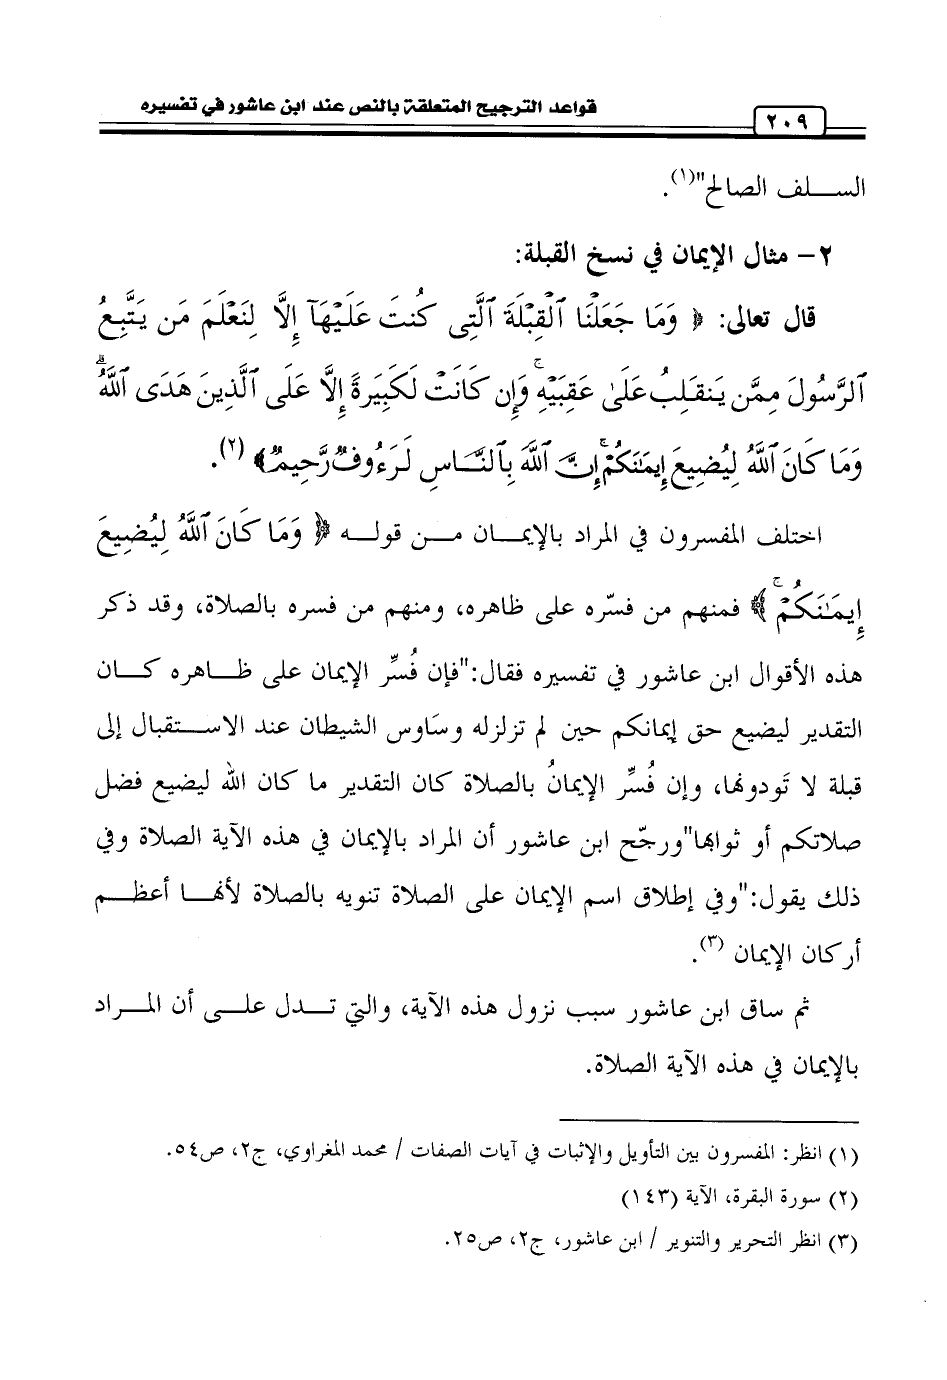 قواعد الترجيح المتعلقة بالنص عند ابن عاشور في تفسيره
٢٠٩
الســـلف الصالح"(١).
٢- مثال الإيمان في نسخ القبلة:
قال تعالى: ﴿ وَمَا جَعَلْنَا ٱلْقِبْلَةَ ٱلَّتِى كُنتَ عَلَيْهَآ إِلَّا لِنَعْلَمَ مَن يَتَّبِعُ
ٱلرَّسُولَ مِمَّن يَنقَلِبُ عَلَىٰ عَقِبَيْهِ ۚ وَإِن كَانَتْ لَكَبِيرَةً إِلَّا عَلَى ٱلَّذِينَ هَدَى ٱللَّهُ ۗ
وَمَا كَانَ ٱللَّهُ لِيُضِيعَ إِيمَـٰنَكُمْ ۚ إِنَّ ٱللَّهَ بِٱلنَّاسِ لَرَءُوفٌ رَّحِيمٌ ﴾(٢).
اختلف المفسرون في المراد بالإيمـــان مـــن قولـــه ﴿ وَمَا كَانَ ٱللَّهُ لِيُضِيعَ
إِيمَـٰنَكُمْ ۚ ﴾ فمنهم من فسّره على ظاهره، ومنهم من فسره بالصلاة، وقد ذكر
هذه الأقوال ابن عاشور في تفسيره فقال:"فإن فُسِّر الإيمان على ظـــاهره كـــان
التقدير ليضيع حق إيمانكم حين لم تزلزله وسَاوس الشيطان عند الاســـتقبال إلى
قبلة لا تَودونها، وإن فُسِّر الإيمانُ بالصلاة كان التقدير ما كان الله ليضيع فضل
صلاتكم أو ثوابها"ورجّح ابن عاشور أن المراد بالإيمان في هذه الآية الصلاة وفي
ذلك يقول:"وفي إطلاق اسم الإيمان على الصلاة تنويه بالصلاة لأنهـــا أعظـــم
أركان الإيمان (٣).
ثم ساق ابن عاشور سبب نزول هذه الآية، والتي تـــدل علـــى أن المـــراد
بالإيمان في هذه الآية الصلاة.
(١) انظر: المفسرون بين التأويل والإثبات في آيات الصفات / محمد المغراوي، ج٢، ص٥٤.
(٢) سورة البقرة، الآية (١٤٣)
(٣) انظر التحرير والتنوير / ابن عاشور، ج٢، ص٢٥.